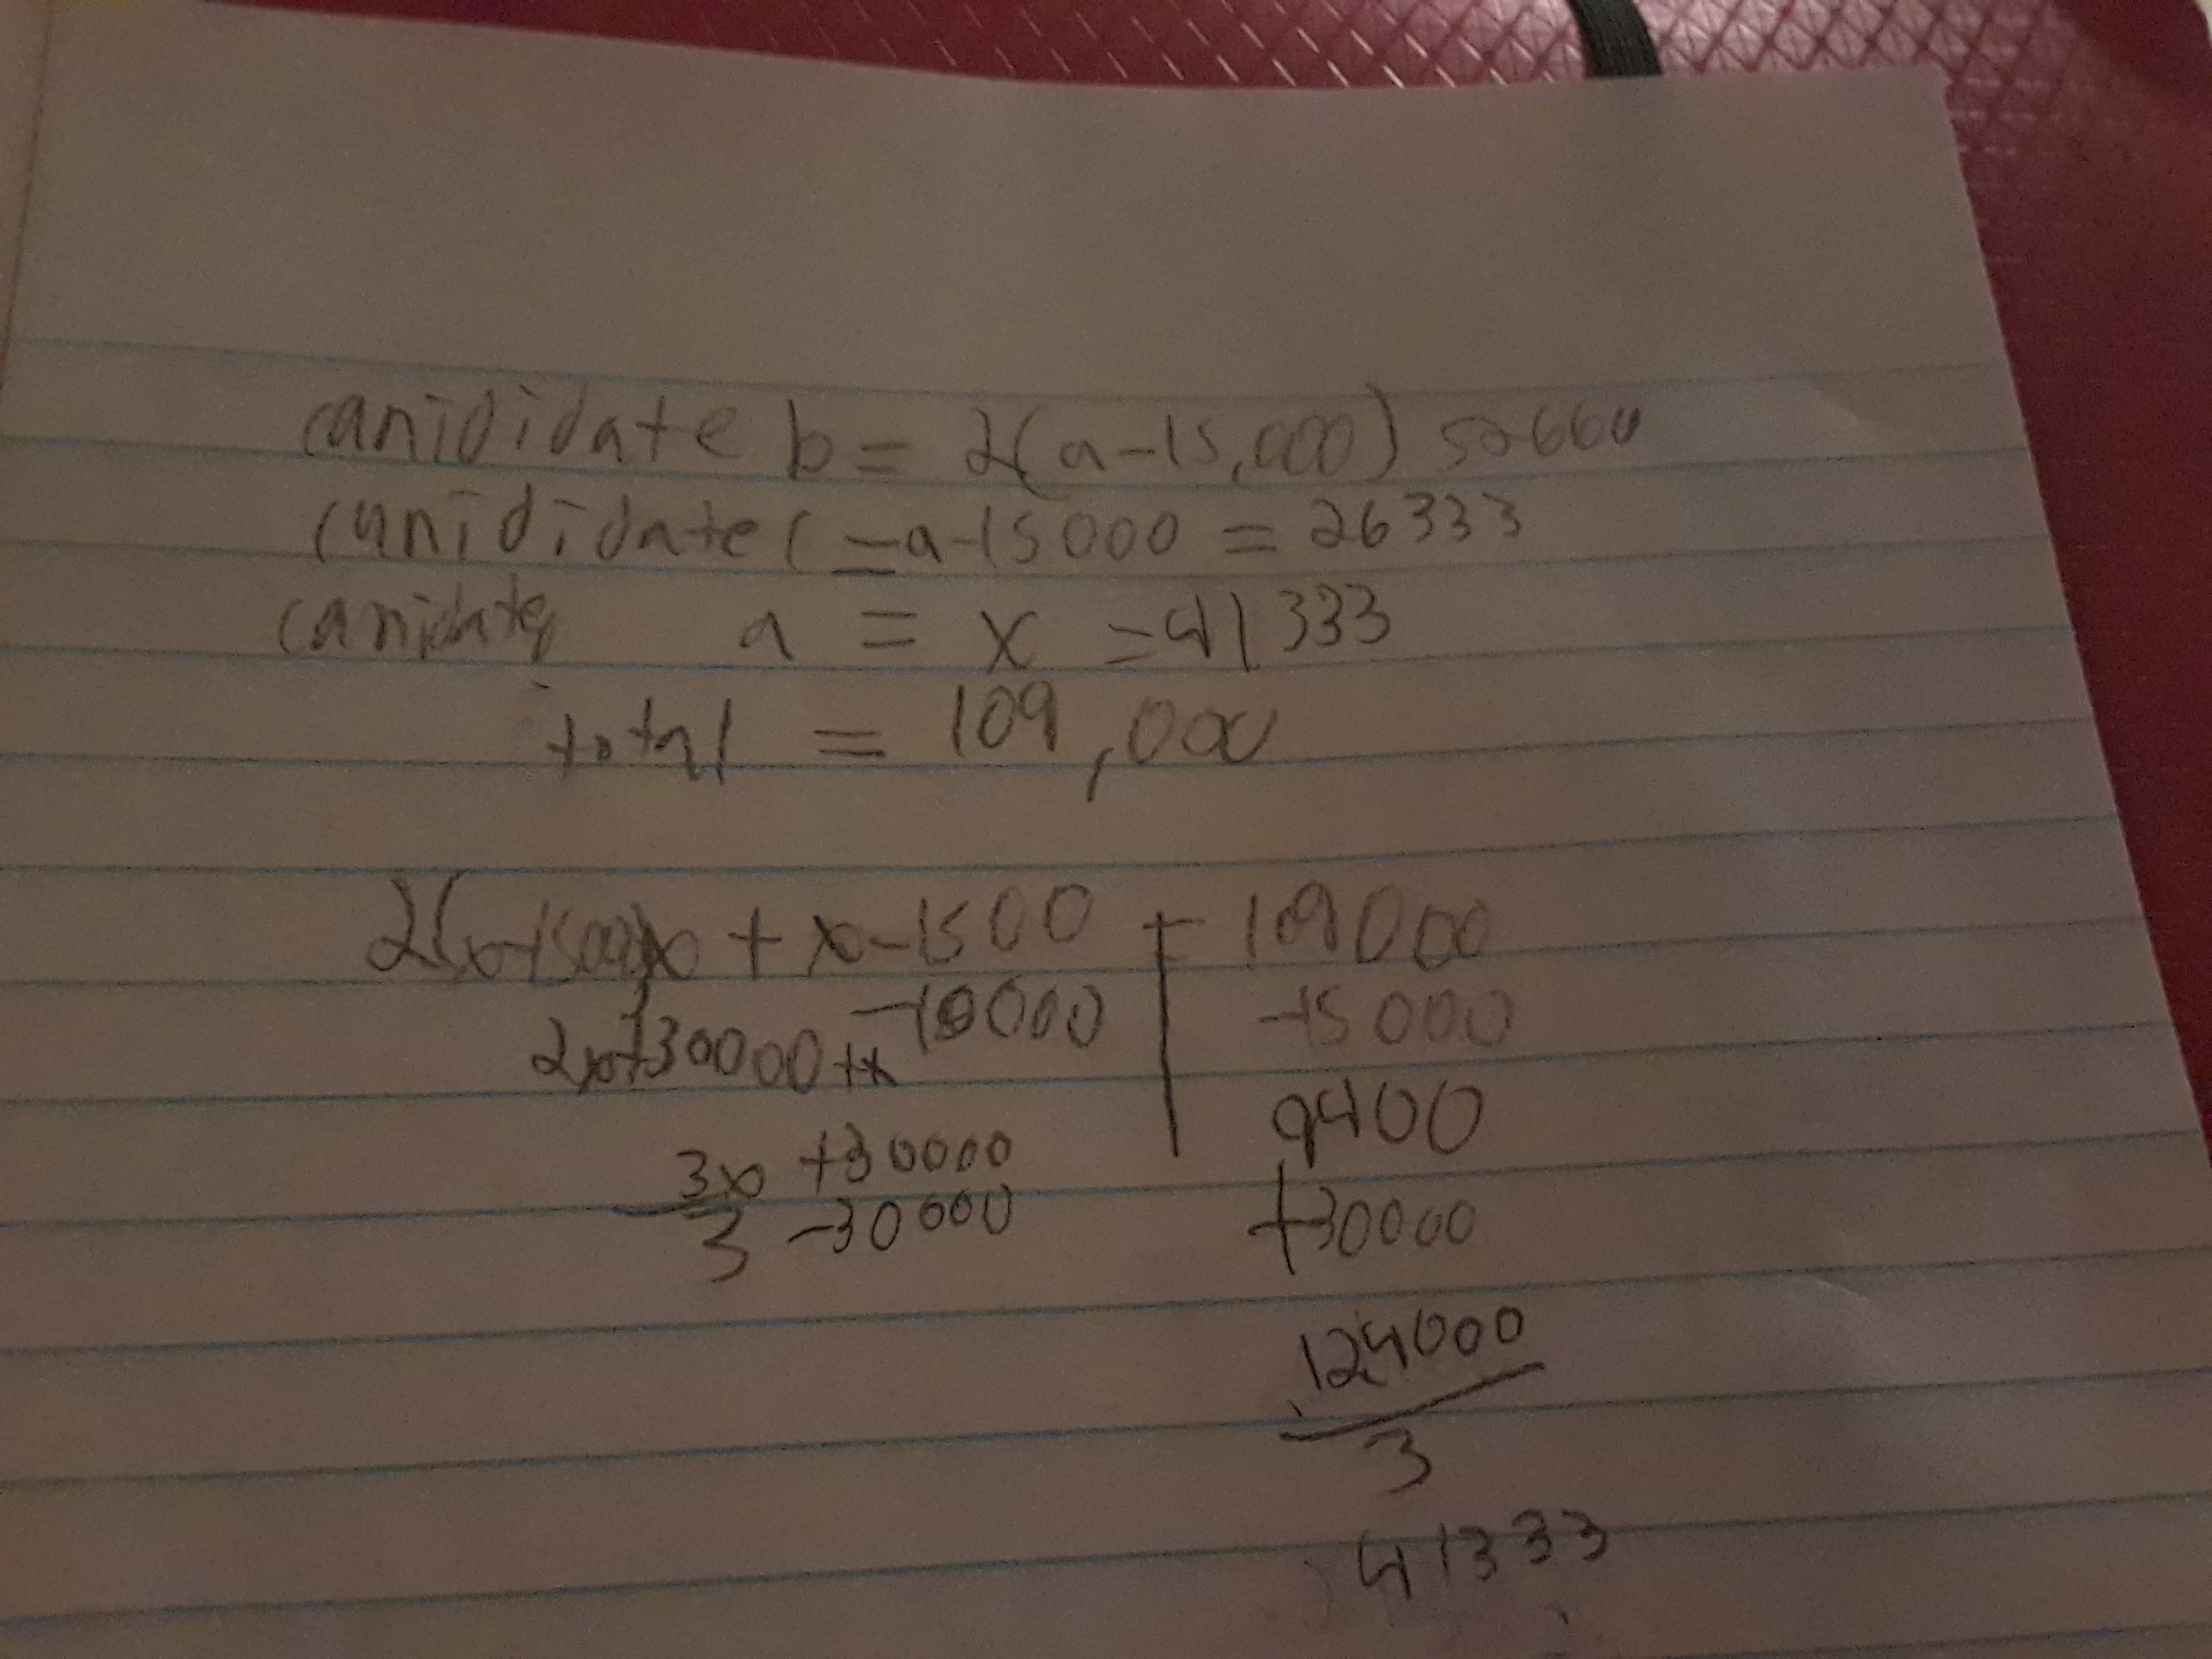 canididate b = 2(a-15,000) 52660
canididate c = a-15000 = 26333
canidate a = x = 41333
total = 109,000
+ x-1500 = 109000
-15000
2x+30000+x
9400
3x +30000
3 -30000
+30000
124000
3
41333